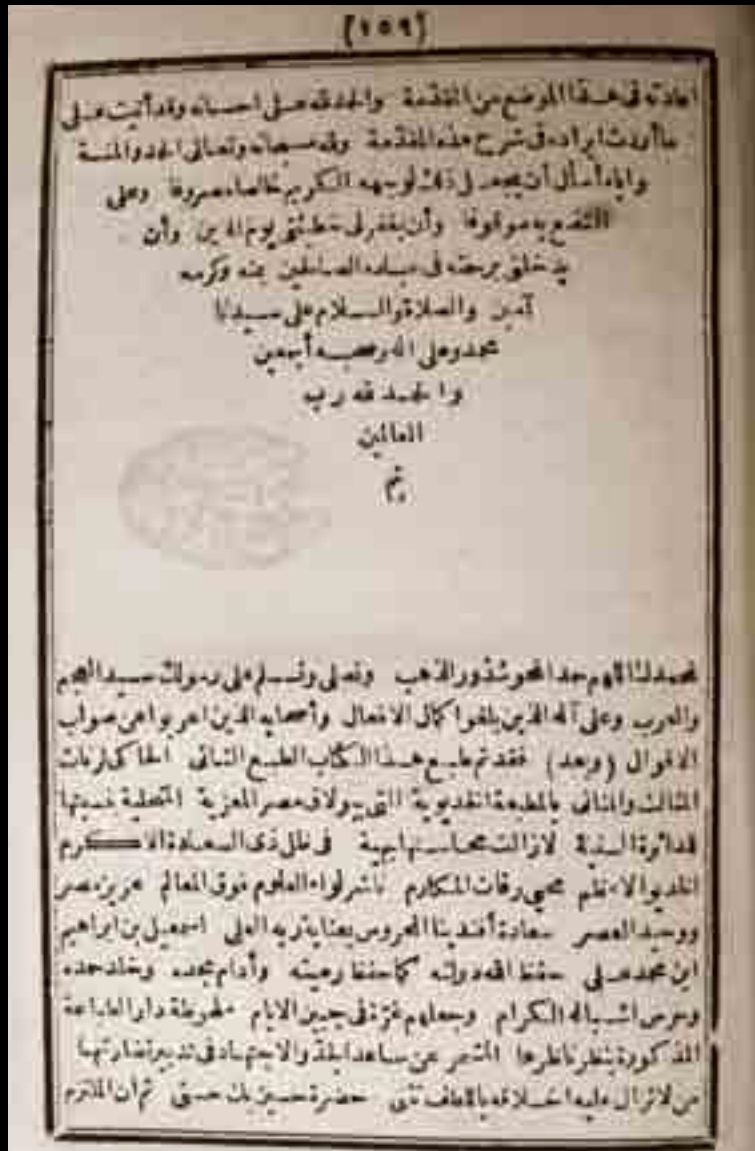 [١٥٩]
اعادته في هذا الموضع من المقدمة والحمد لله على احسانه وقد أتيت على
ما أردت ايراده في شرح هذه المقدمة ولله سبحانه وتعالى الحمد والمنة
واياه أسأل أن يجعل ذلك لوجهه الكريم خالصا مصروفا وعلى
النفع به موقوفا وأن يغفر لي خطيئتي يوم الدين وأن
يدخلني برحمته في عباده الصالحين بمنه وكرمه
آمين والصلاة والسلام على سيدنا
محمد وعلى اله وصحبه أجمعين
والحمد لله رب
العالمين
تم
نحمدك اللهم حمد المحو شذور الذهب ونصلى ونسلم على رسولك سيد العجم
والعرب وعلى آله الذين بلغوا كمال الافعال وأصحابه الذين اعربوا عن صواب
الاقوال (وبعد) فقد تم طبع هذا الكتاب الطبع الثانى الحاكى لرنات
المثالث والمثانى بالمطبعة الخديوية التي ببولاق مصر المعزية المتحلية بنسبتها
للدائرة السنية لازالت محاسنها بهية في ظل ذى السعادة الاكرم
الخديو الاعظم محيى رفات المكارم ناشر لواء العلوم فوق المعالم عزيز مصر
ووحيد العصر سعادة أفندينا المحروس بعناية ربه العلى اسمعيل بن ابراهيم
ابن محمد على حفظ الله دولته كما حفظ رعيته وأدام مجده وخلد حمده
وحرس اشباله الكرام وجعلهم غرة في جبين الايام ملحوظة دار الطباعة
المذكورة بنظر ناظرها المشمر عن ساعد الجد والاجتهاد في تدبير نضارتها
من لاتزال عليه اخلاقه باللطف تثنى حضرة حسين بك حسنى ثم ان الملتزم